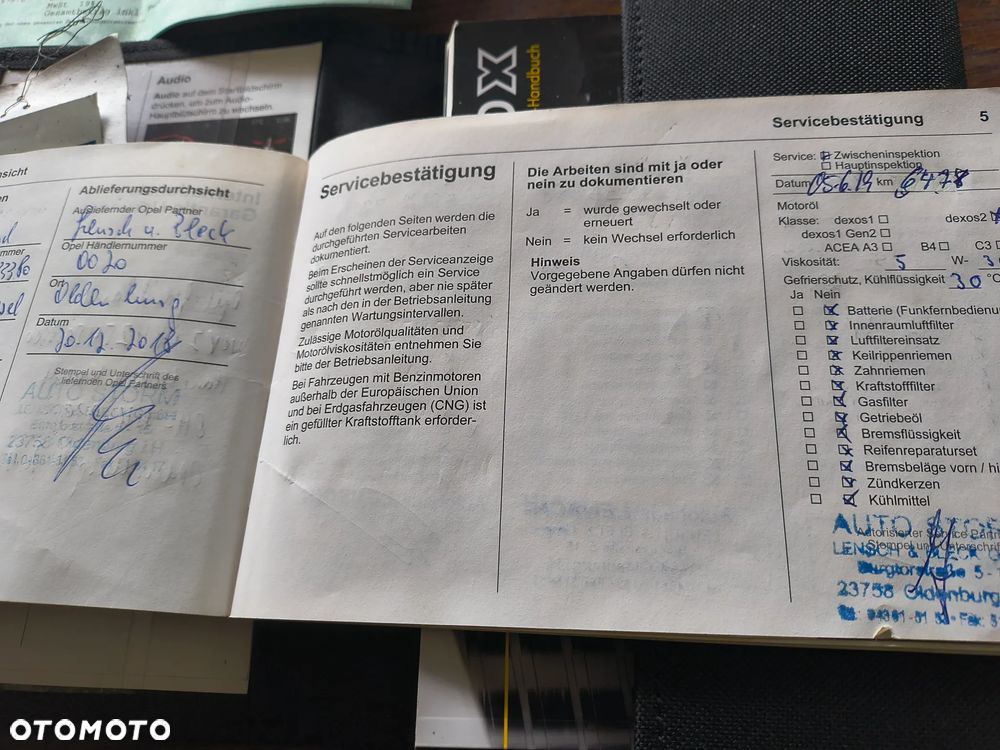 MwSt 19%
Gesamtbetrag inkl
Audio
Audio auf dem Startbildschirm
drücken, um zum Audio-
Hauptbildschirm zu wechseln.
OX
-Handbuch
sicht
Ablieferungsdurchsicht
Ausliefernder Opel Partner
Lensch u. Bleck
Opel Händlernummer
0020
Ort
Oldenburg
Datum
20.12.2018
Stempel und Unterschrift des
liefernden Opel Partners
AUTO STORM
23758
Servicebestätigung
Auf den folgenden Seiten werden die
durchgeführten Servicearbeiten
dokumentiert.
Beim Erscheinen der Serviceanzeige
sollte schnellstmöglich ein Service
durchgeführt werden, aber nie später
als nach den in der Betriebsanleitung
genannten Wartungsintervallen.
Zulässige Motorölqualitäten und
Motorölviskositäten entnehmen Sie
bitte der Betriebsanleitung.
Bei Fahrzeugen mit Benzinmotoren
außerhalb der Europäischen Union
und bei Erdgasfahrzeugen (CNG) ist
ein gefüllter Kraftstofftank erforder-
lich.
Die Arbeiten sind mit ja oder
nein zu dokumentieren
Ja = wurde gewechselt oder
erneuert
Nein = kein Wechsel erforderlich
Hinweis
Vorgegebene Angaben dürfen nicht
geändert werden.
Servicebestätigung 5
Service: Zwischeninspektion
Hauptinspektion
Datum 05.6.19 km 6478
Motoröl
Klasse: dexos1 dexos2
dexos1 Gen2
ACEA A3 B4 C3
Viskosität: 5 W- 30
Gefrierschutz, Kühlflüssigkeit 30 °C
Ja Nein
Batterie (Funkfernbedienu
Innenraumluftfilter
Luftfiltereinsatz
Keilrippenriemen
Zahnriemen
Kraftstofffilter
Gasfilter
Getriebeöl
Bremsflüssigkeit
Reifenreparaturset
Bremsbeläge vorn / hi
Zündkerzen
Kühlmittel
AUTO STOR
Autorisierter Service Partn
Stempel und Unterschrift
LENSCH & BLECK G
Burgtorstraße 5 -
23758 Oldenburg
OTOMOTO